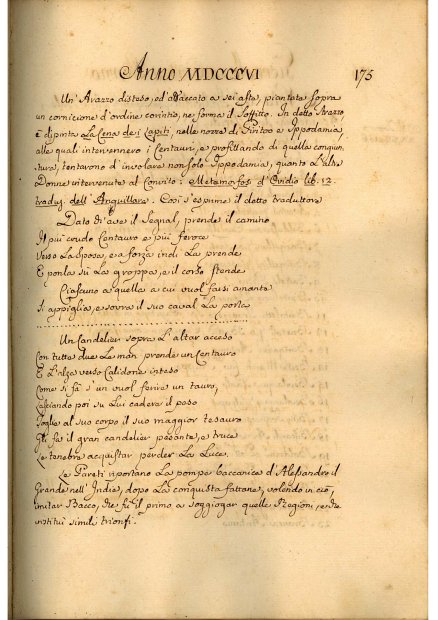 Anno MDCCCVI 175
Un' Arazzo disteso, ed' attaccato a sei aste, piantate sopra
un cornicione d'ordine corintio, ne forma il Soffitto. In detto Arazzo
è dipinta La Cena de i Lapiti, nelle nozze di Piritoo e Ippodamia,
alle quali intervennero i Centauri, e profittando di quella congiun-
tura, tentarono d'involare non solo Ippodamia, quanto L'altre
Donne intervenute al Convito: Metamorfosi d'Ovidio lib. 12.
traduz. dell'Anguillara. Così s'esprime il detto traduttore
Dato di ave il Segnal, prende il camino
Il più crudo Centauro e più feroce
Verso La Sposa, e a forza indi La prende
E ponla su La groppa, e il corso stende
Ciascuno a quella a cui vuol farsi amante
Si appiglia, e sovra il suo caval La porta
Un Candelier sopra L'altar acceso
Con tutte due Le man prende un Centauro
E L'alza verso Calidone inteso
Come si fà s'un vuol ferire un tauro,
Lasciando poi su Lui cadere il peso
Toglie al suo corpo il suo maggior tesauro
Gli fà il gran candelier pesante, e truce
Le tenebre acquistar perder La Luce.
Le Pareti riportano La pompa baccanica d'Alessandro il
Grande nell'Indie, dopo La conquista fattane, volendo in ciò,
imitar Bacco, che fù il primo a soggiogar quelle Regioni, e che
instituì simili trionfi.